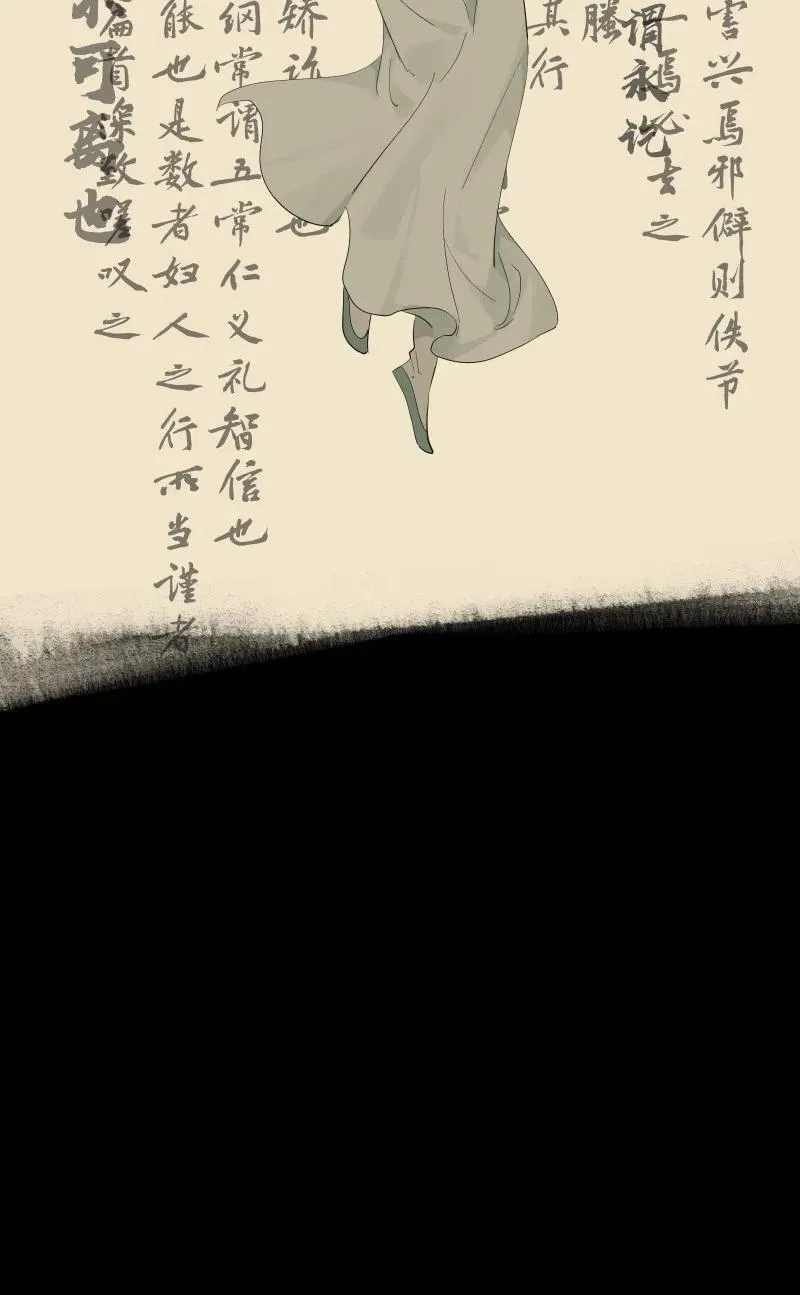 害兴焉邪僻则佚节
焉必去之
谓永讫
螣
其行
矫诈
也
纲常谓五常仁义礼智信也
能也是数者妇人之行所当谨者
篇首深致嗟叹之
可离也